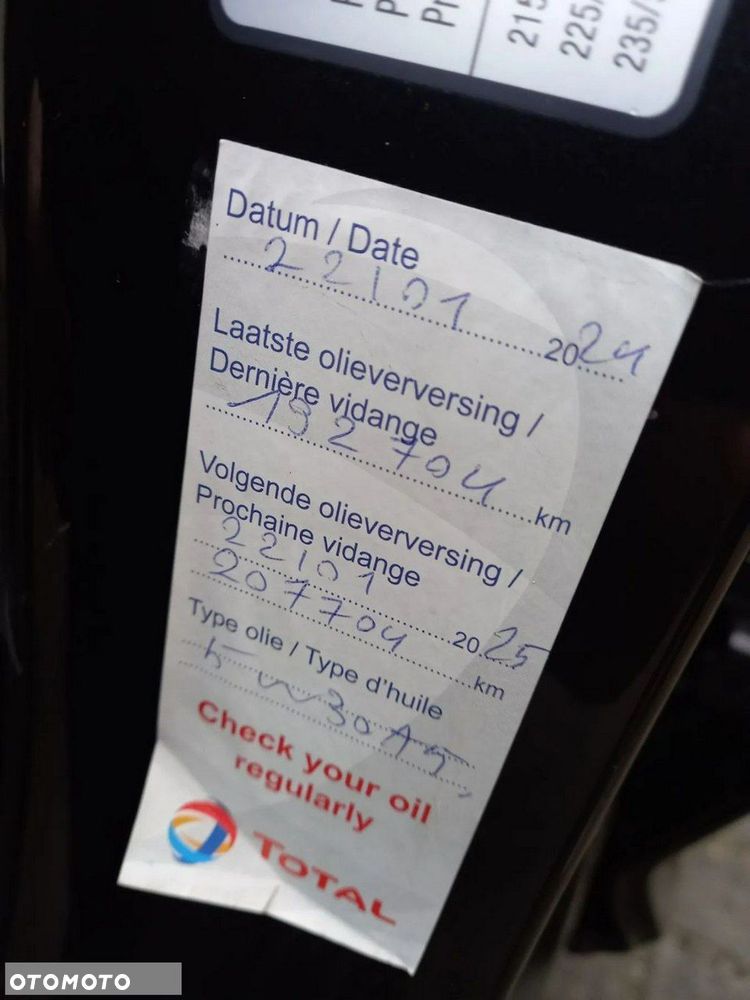 215
225/
235/
Datum / Date
22/01 2024
Laatste olieverversing /
Dernière vidange
192 704 km
Volgende olieverversing /
Prochaine vidange
22/01 2025
207704 km
Type olie / Type d'huile
5-W30
Check your oil
regularly
TOTAL
OTOMOTO